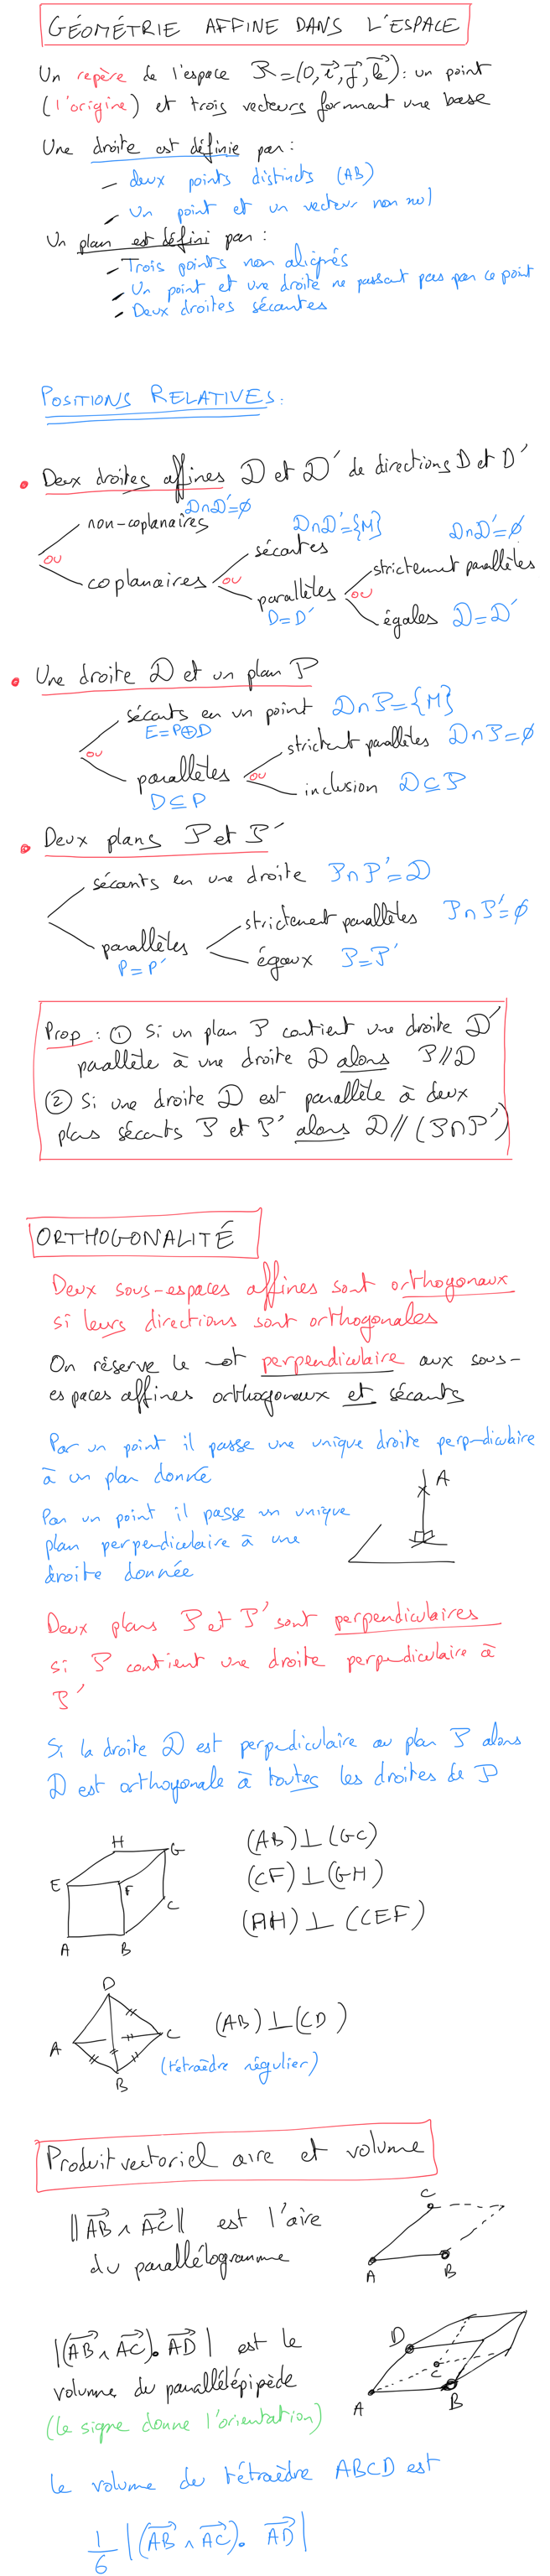 GÉOMÉTRIE AFFINE DANS L'ESPACE
Un repère de l'espace R=(O,i,j,k): un point
(l'origine) et trois vecteurs formant une base
Une droite est définie par :
- deux points distincts (AB)
- Un point et un vecteur non nul
Un plan est défini par :
- Trois points non alignés
- Un point et une droite ne passant pas par ce point
- Deux droites sécantes
POSITIONS RELATIVES :
• Deux droites affines D et D' de directions D et D'
D∩D'=∅
non-coplanaires
D∩D'={M}
D∩D'=∅
sécantes
ou
strictement parallèles
coplanaires
ou
parallèles
ou
D=D'
égales D=D'
• Une droite D et un plan P
sécants en un point D∩P={M}
E=P⊕D
ou
strictent parallèles D∩P=∅
parallèles
ou
inclusion D⊆P
D⊆P
• Deux plans P et P'
sécants en une droite P∩P'=D
strictement parallèles P∩P'=∅
parallèles
P=P'
égaux P=P'
Prop : ① Si un plan P contient une droite D'
parallèle à une droite D alors P//D
② Si une droite D est parallèle à deux
plans sécants P et P' alors D//(P∩P')
ORTHOGONALITÉ
Deux sous-espaces affines sont orthogonaux
si leurs directions sont orthogonales
On réserve le mot perpendiculaire aux sous-
espaces affines orthogonaux et sécants
Par un point il passe une unique droite perpendiculaire
à un plan donné
A
Par un point il passe un unique
plan perpendiculaire à une
droite donnée
Deux plans P et P' sont perpendiculaires
si P contient une droite perpendiculaire à
P'
Si la droite D est perpendiculaire au plan P alors
D est orthogonale à toutes les droites de P
H
G
E
F
C
A
B
(AB)⊥(GC)
(CF)⊥(GH)
(AH)⊥(CEF)
D
A
C
B
(AB)⊥(CD)
(tétraèdre régulier)
Produit vectoriel aire et volume
‖AB∧AC‖ est l'aire
du parallélogramme
C
A
B
|(AB∧AC).AD| est le
volume du parallélépipède
(le signe donne l'orientation)
D
C
A
B
Le volume du tétraèdre ABCD est
1/6 |(AB∧AC).AD|